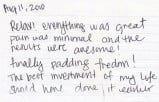 Aug 11, 2010
Relax! everything was great
pain was minimal and the
results were awesome!
finally padding freedom!
The best investment of my life
should have done it earlier